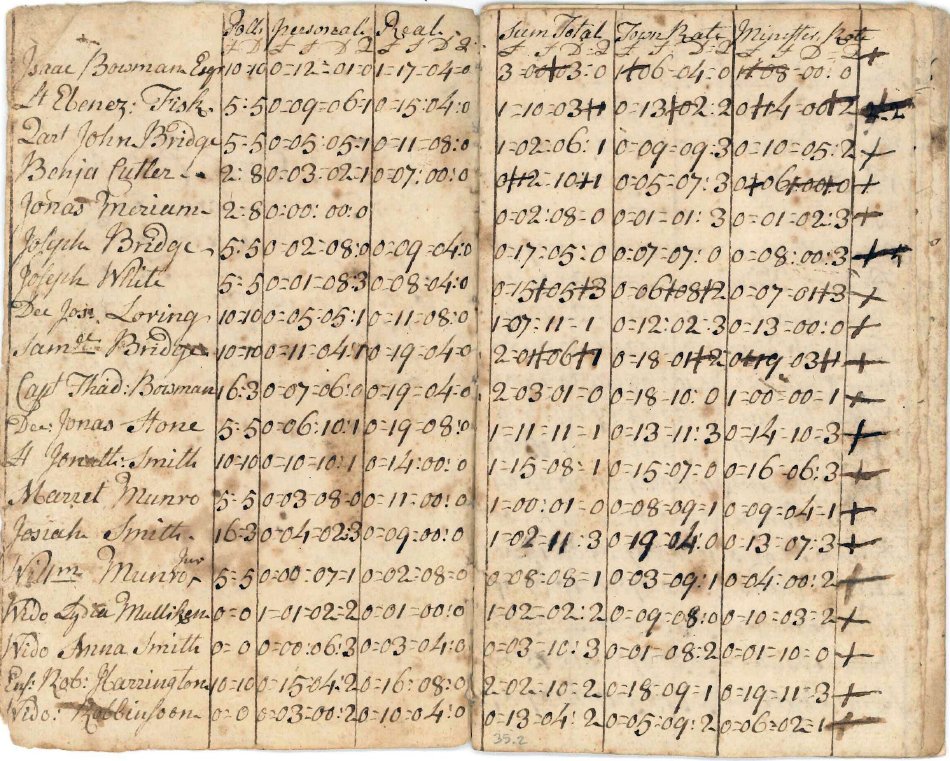 Polls Personal Real Sum Total Town Rate Minister Rate
£ S D £ S D Q £ S D Q £ S D Q £ S D Q £ S D Q
Isaac Bowman Esqr 10=10 0=12=01=0 1=17=04=0 3=00=03=0 1=06-04=0 1=08-00:0 +
Lt Ebenez: Fisk 5=5 0=09=06=1 0=15:04:0 1=10=03=1 0=13=02:2 0=14-00=2
Qart John Bridge 5=5 0=05:05=1 0=11=08:0 1=02=06:1 0=09=09:3 0=10=05:2 +
Benja Cutler 2:8 0=03=02=1 0=07:00:0 0=12=10=1 0=05=07:3 0=06=00=0 +
Jonas Meriam 2=8 0=00:00:0 0=02:08=0 0=01=01:3 0=01=02:3 +
Joseph Bridge 5=5 0=02=08:0 0=09=04:0 0=17:05:0 0=07=07:0 0=08:00:3 +
Joseph White 5=5 0=01=08:3 0=08=04:0 0=15=05=3 0=06=08=2 0=07=01=3 +
Dec Josn Loring 10=10 0=05=05:1 0=11=08:0 1=07=11=1 0=12:02:3 0=13=00:0 +
Samll Bridge 10=10 0=11=04:1 0=19=04=0 2=01=06=1 0=18=01=2 0=19=03=1 +
Capt Thad: Bowman 16:3 0=07=06:0 0=19=04=0 2=03=01=0 0=18=10:0 1=00=00=1 +
Dec: Jonas Stone 5=5 0=06:10:1 0=19=08:0 1=11=11=1 0=13=11:3 0=14=10=3 +
Lt Jonath: Smith 10=10 0=10=10:1 0=14:00:0 1=15=08=1 0=15=07=0 0=16=06:3 +
Marret Munro 5=5 0=03=08=0 0=11=00:0 1=00:01=0 0=08=09=1 0=09=04=1 +
Josiah Smith 16=3 0=04=02:3 0=09=00:0 1=02=11:3 0=19=04:0 0=13=07:3 +
Willm Munro Junr 5=5 0=00:07=1 0=02=08=0 0=08:08=1 0=03=09:1 0=04:00:2 +
Wido Lyda Mulliken 0=0 1=01=02=2 0=01=00:0 1=02=02:2 0=09=08:0 0=10=03=2 +
Wido Anna Smith 0=0 0=00:06:3 0=03=04:0 0=03=10:3 0=01=08:2 0=01=10=0 +
Ens: Rob: Harrington 10=10 0=15=04:2 0=16:08:0 2=02=10=2 0=18=09=1 0=19=11=3 +
Wido: Robbinsoon 0=0 0=03=00:2 0=10=04:0 0=13=04:2 0=05=09:2 0=06:02=1
35.2